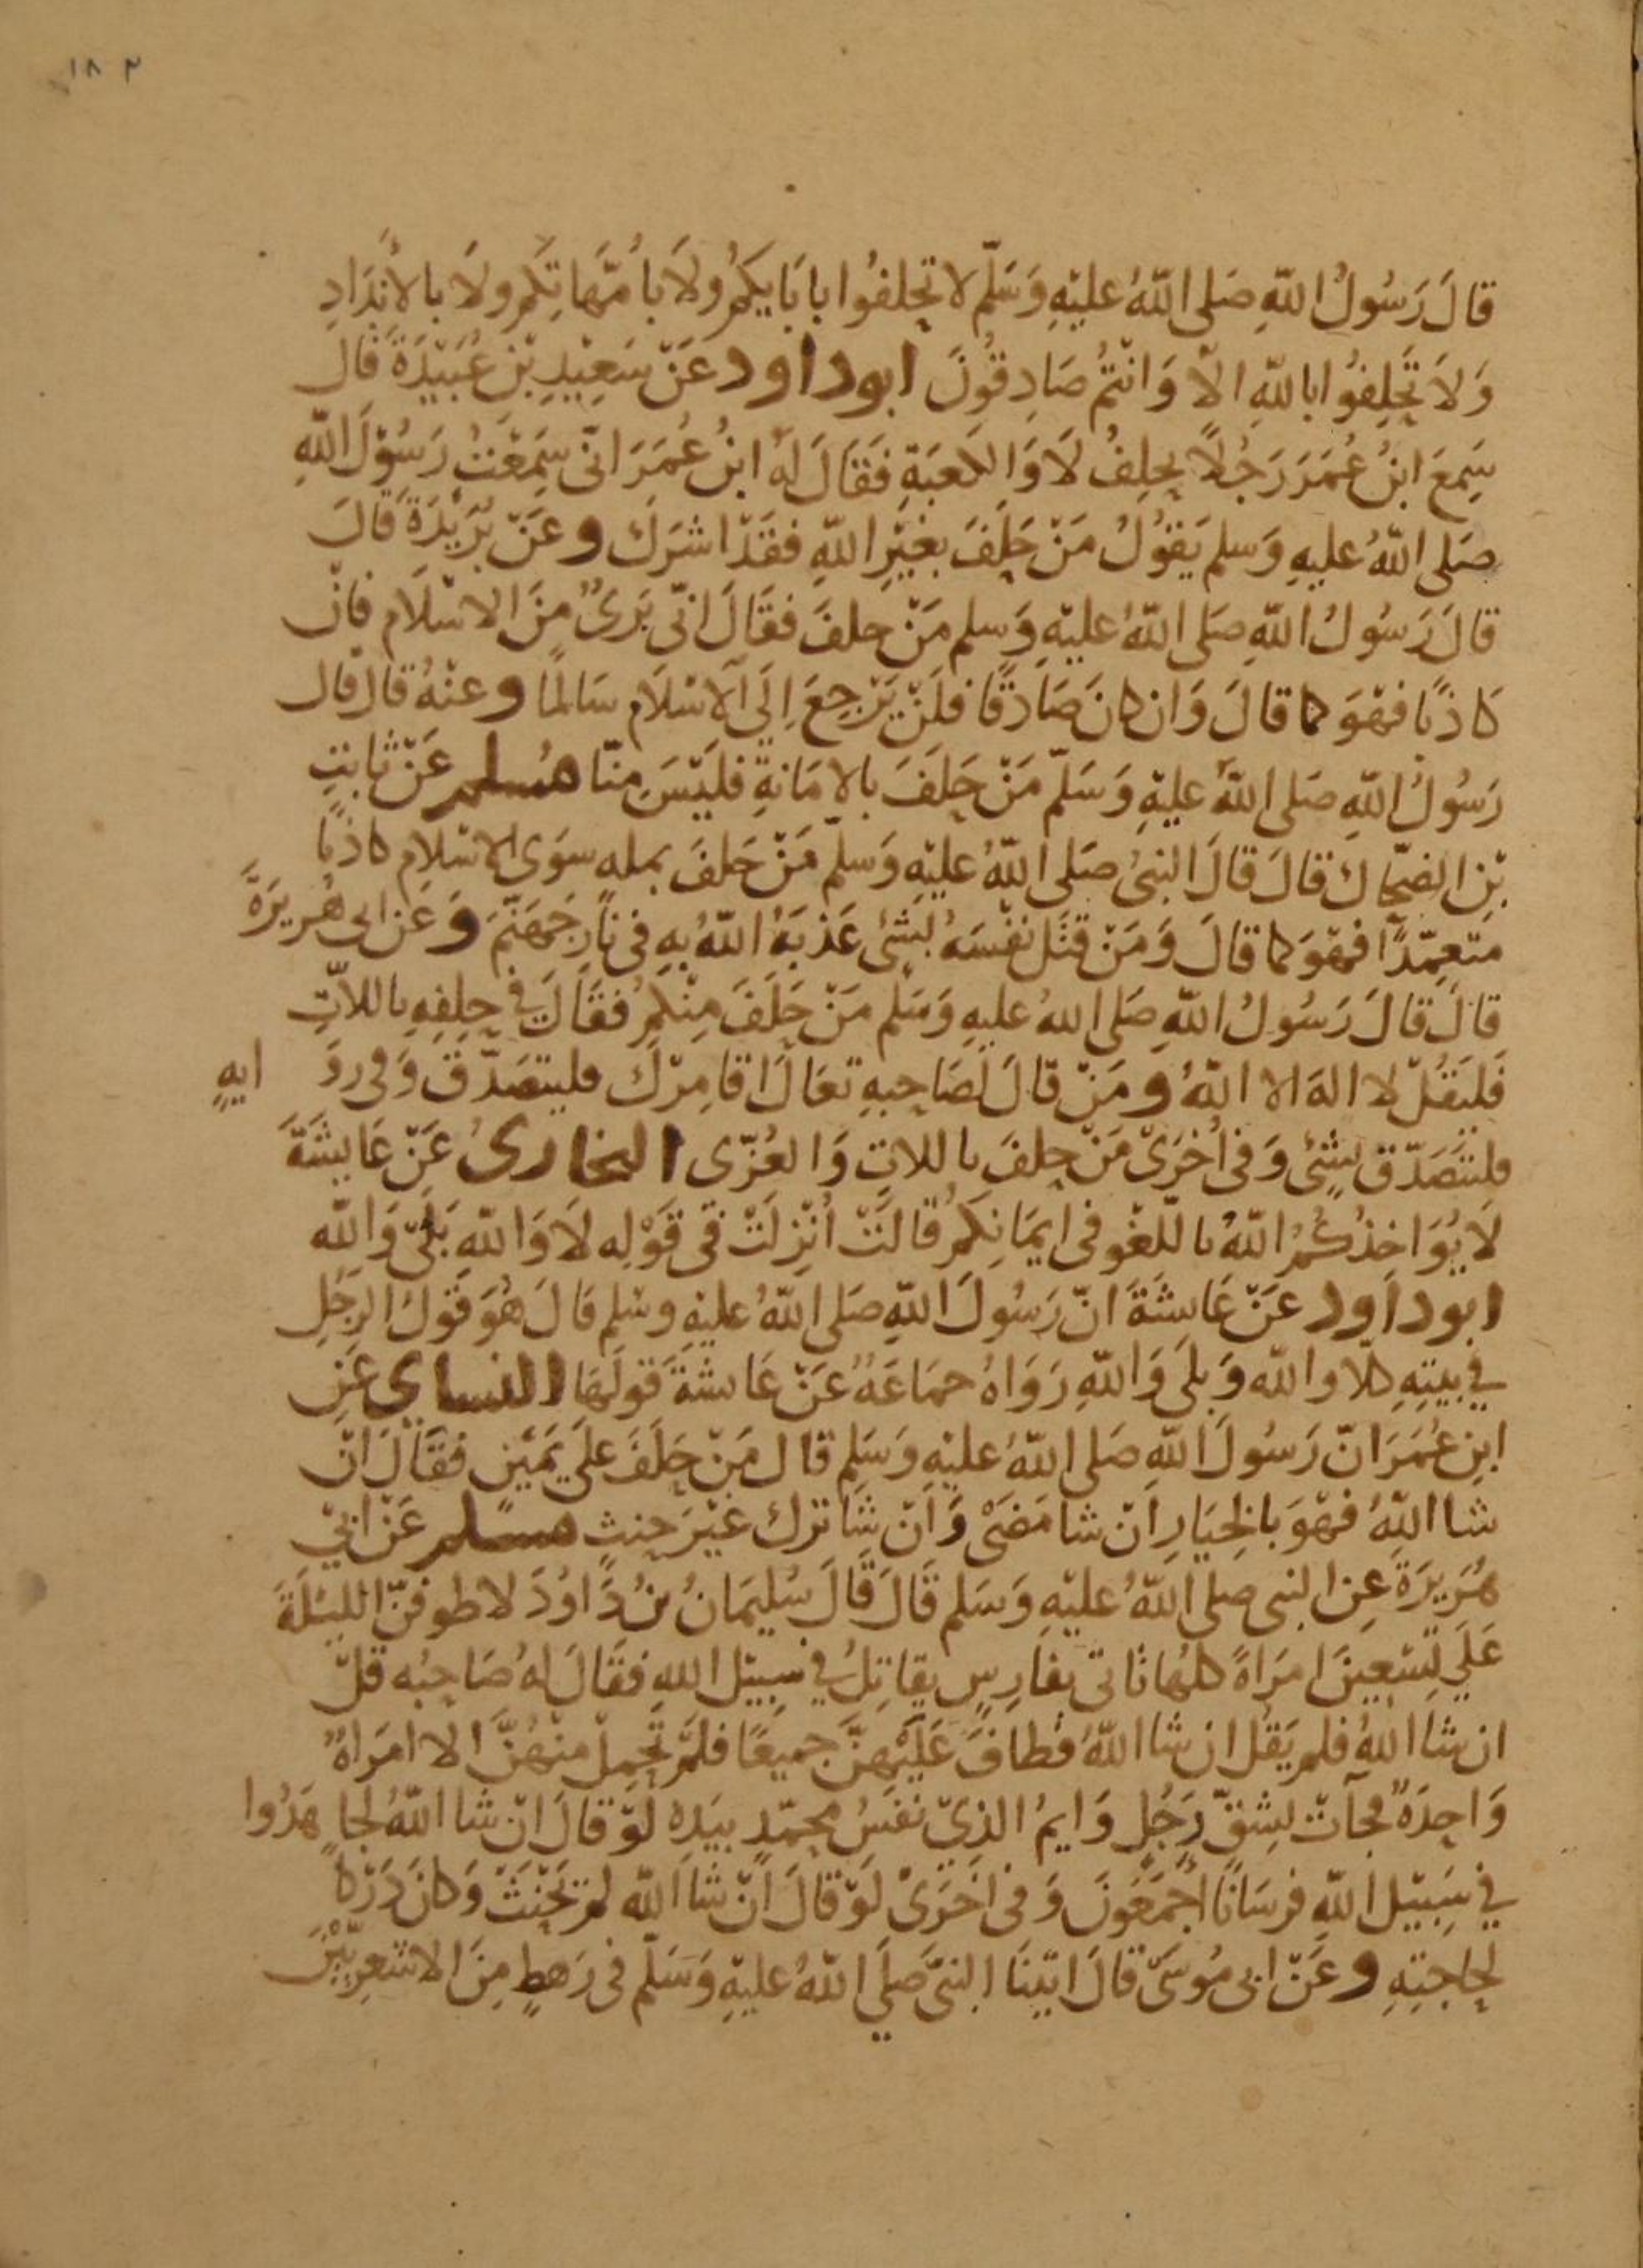 ١٨٣
قَالَ رَسُولُ اللّهِ صَلى اللّهُ عليْهِ وَسَلّم لا تحلفُوا بابَايكمُ ولَا بامّهَاتكِم ولَا بالأندَادِ
وَلاَ تَحلِفُوا باللّهِ الّا وَانْتُم صَادِقُونَ ابوداود عَنْ سَعِيْدِ بْنِ عُبَيْدَةَ قال
سَمِعَ ابنُ عُمَرَ رَجُلاً يحلِفُ لَا وَالكعبَةِ فَقَالَ لهُ ابنُ عُمَرَ انّى سَمِعْتُ رَسُوْلَ اللّهِ
صَلى اللّهُ عليهِ وَسلم يَقُوْلُ مَنْ حَلَفَ بغيْرِ اللّهِ فقَدْ اشرَك وعَنْ بُرَيْدَةَ قالَ
قالَ رَسُولُ اللّهِ صَلى اللّهُ عليْهِ وَسلم مَنْ حلفَ فقَالَ انّى بَرىٌ مِنَ الاسْلَام فانْ
كَاذبًا فهْوَ كما قالَ وَان كانَ صَادقًا فلَنْ يَرْجِعَ اِلَى الاسْلَام سَالمًا وعنْهُ قال قال
رَسُولُ اللّهِ صَلى اللّهُ عليْهِ وَسَلّم مَنْ حَلَفَ بالامَانةِ فليْسَ مِنّا مُسلم عَنْ ثابتِ
بْنِ الضحّاك قالَ قالَ النبىُ صَلى اللّهُ عليْهِ وَسلّم مَنْ حَلفَ بمله سوَى الاسْلام كاذبًا
متعمّدًا فهْوَ كما قالَ وَمَنْ قتَل نفْسَهُ بشَئ عَذبَهُ اللّهُ بهِ فى نارِ جَهَنّمَ وَعَن ابى هُريرَةَ
قالَ قالَ رَسُولُ اللّهِ صَلى اللهُ عليهِ وَسَلم مَنْ حَلَفَ مِنْكمُ فقَالَ فِى حلِفِهِ باللاّتِ
فَليَقُلْ لا الهَ الا اللّهُ ومَنْ قالَ لصَاحِبهِ تعَالَ اقامِرْك فليتصَدّق وَفى روَ ايهٍ
فليتصَدّق بشئ وَفى أخرَىْ مَنْ حلفَ باللاتِ وَالعُزّى البخارىُ عَنْ عَايشَةَ
لَا يُوَاخِذُكُمُ اللّهُ باللّغْوِ فى ايمَانِكمُ قالتْ اُنْزِلَتْ فى قَوْلِه لَا وَاللّهِ بَلَى وَاللّه
ابوداود عَنْ عَاىشَةَ انّ رَسُولَ اللّهِ صَلى اللّهُ عليْهِ وسْلم قالَ هُوَ قَولُ الرجُلِ
فِي بيتهِ كلا والله وَبلَى وَاللّهِ رَوَاهُ جمَاعَهُ عَنْ عَاىشةَ قولَهَا النساى عَنِ
ابنِ عُمَرَ انّ رَسُولَ اللّهِ صَلى اللّهُ عليْهِ وَسَلم قال مَنْ حَلَفَ علَى يَمَيْنِ فقَالَ انْ
شا اللّهُ فهْوَ بالخِيَارِ اَنْ شا مَضَىْ وَانْ شَا ترك غيْرَ حِنثٍ مسلم عَنْ ابىْ
هُرَيرَةَ عنِ النبى صلى اللّهُ عليْهِ وَسَلم قالَ قالَ سُليمَانُ بنُ دَاوُدَ لاطوفنّ الليْلَةَ
عَلَى تِسْعِينَ امرَاةً كلهُا تاتى بفارِسٍ يقاتِلُ فِي سَبِيْل اللهِ فقَالَ لهُ صَاحِبُه قلْ
ان شَا اللّهُ فلم يَقُل ان شا اللّهُ فطافَ عَلَيْهِنَّ جميعًا فلَمْ تَحمِلْ منهُنَّ الا امرَاهٌ
وَاحِدَةٌ فجآتْ بِشِقِّ رَجُلٍ وَايمُ الذِيْ نفسُ محمّدٍ بيَدهِ لوْ قالَ انْ شا اللّهُ لجا هَدُوا
فِي سَبِيْل اللّهِ فرسَانًا اجمَعُونَ وَفى اخرَىْ لَوْ قالَ انْ شا اللّه لم يَحْنَثْ وَكانَ دَرَكا
لحاجتِهِ وعَنْ ابى مُوسَىْ قالَ اتيْنَا النبىَّ صَلَى اللّهُ عليْهِ وَسَلّم فى رَهطٍ مِنَ الاشعرِيّيْن